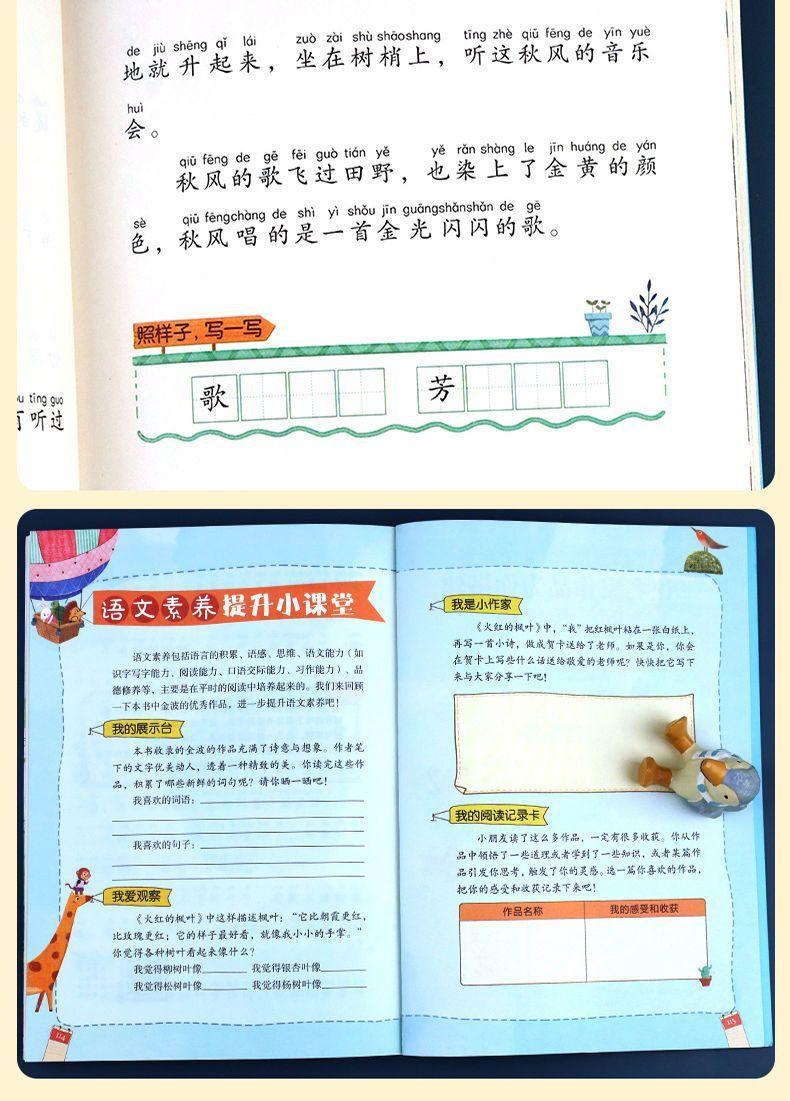 de jiù shēng qǐ lái zuò zài shù shāoshang tīng zhè qiū fēng de yīn yuè
地就升起来，坐在树梢上，听这秋风的音乐
huì
会。
qiū fēng de gē fēi guò tián yě yě rǎn shàng le jīn huáng de yán
秋风的歌飞过田野，也染上了金黄的颜
sè qiū fēngchàng de shì yì shǒu jīn guāngshǎnshǎn de gē
色，秋风唱的是一首金光闪闪的歌。
照样子，写一写
歌 芳
tīng guo
听过
语文素养提升小课堂
语文素养包括语言的积累、语感、思维、语文能力（如
识字写字能力、阅读能力、口语交际能力、习作能力）、品
德修养等，主要是在平时的阅读中培养起来的。我们来回顾
一下本书中金波的优秀作品，进一步提升语文素养吧！
我的展示台
本书收录的金波的作品充满了诗意与想象。作者笔
下的文字优美动人，透着一种精致的美。你读完这些作
品，积累了哪些新鲜的词句呢？请你晒一晒吧！
我喜欢的词语：
我喜欢的句子：
我爱观察
《火红的枫叶》中这样描述枫叶：“它比朝霞更红，
比玫瑰更红；它的样子最好看，就像我小小的手掌。”
你觉得各种树叶看起来像什么？
我觉得柳树叶像 我觉得银杏叶像
我觉得松树叶像 我觉得杨树叶像
114
我是小作家
《火红的枫叶》中，“我”把红枫叶粘在一张白纸上，
再写一首小诗，做成贺卡送给了老师。如果是你，你会
在贺卡上写些什么话送给敬爱的老师呢？快快把它写下
来与大家分享一下吧！
我的阅读记录卡
小朋友读了这么多作品，一定有很多收获。你从作
品中领悟了一些道理或者学到了一些知识，或者某篇作
品引发你思考，触发了你的灵感。选一篇你喜欢的作品，
把你的感受和收获记录下来吧！
作品名称 我的感受和收获
115